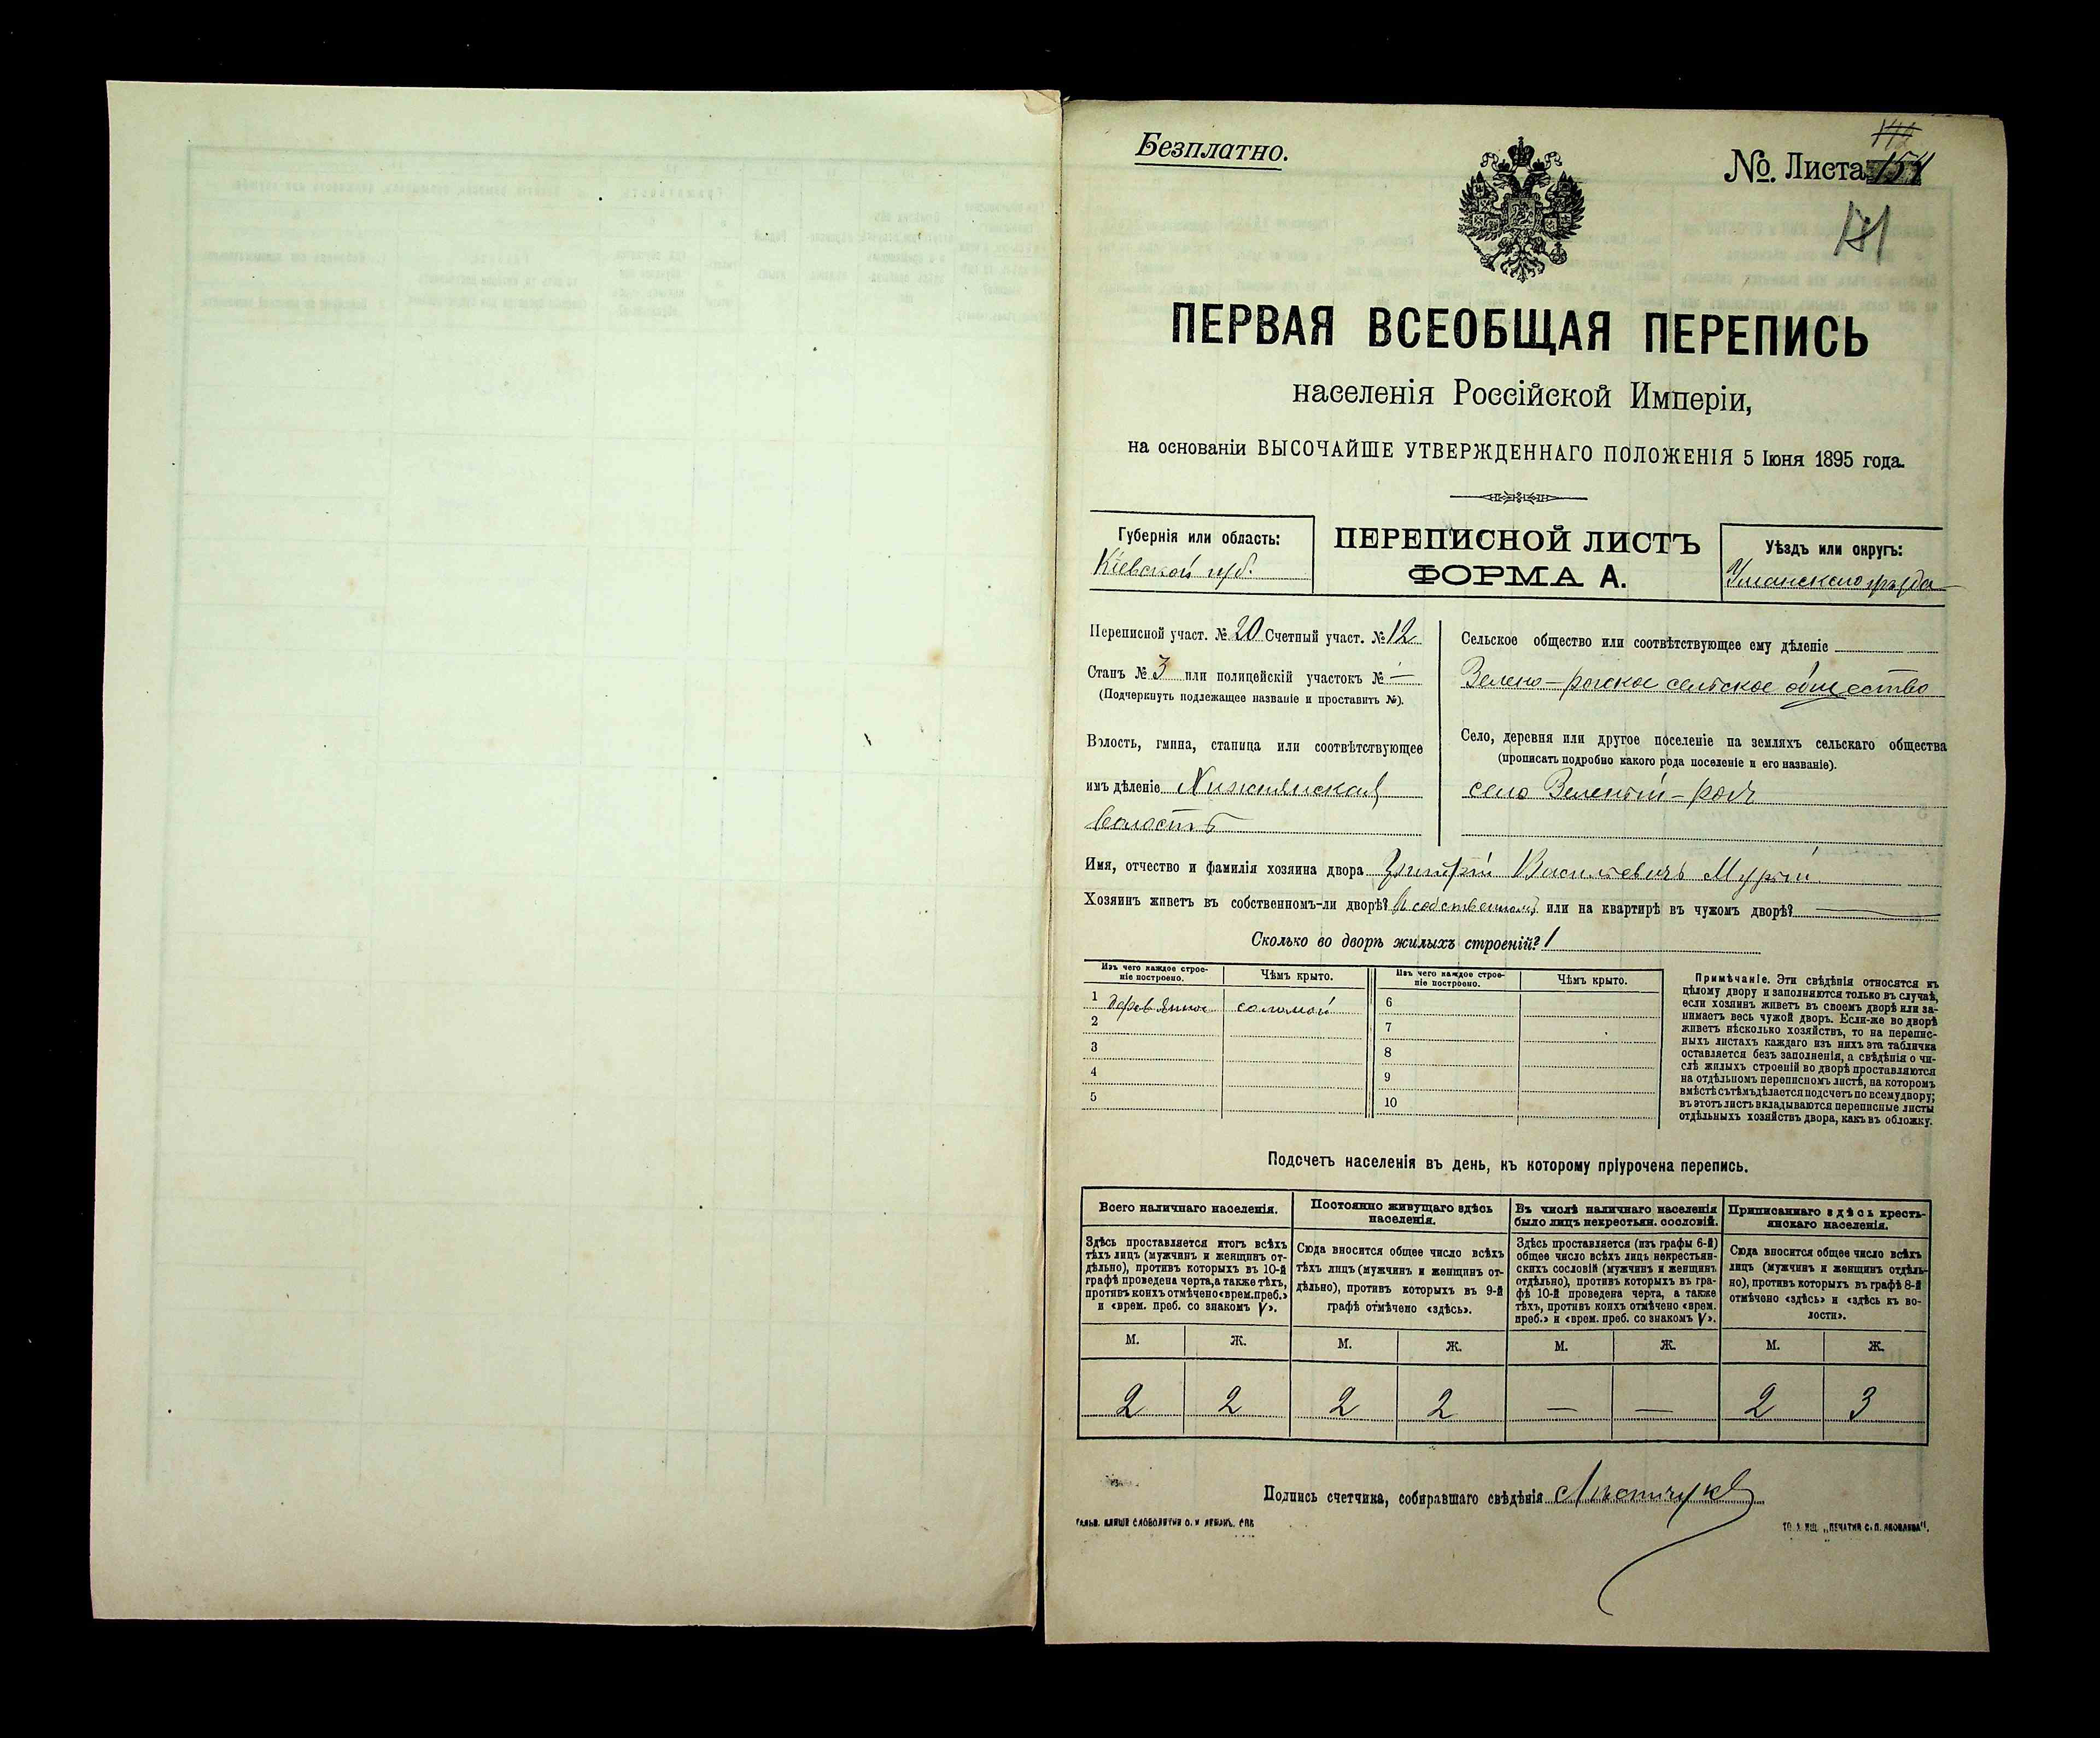 Безплатно.
№. Листа 154
ПЕРВАЯ ВСЕОБЩАЯ ПЕРЕПИСЬ
населенія Россійской Имперіи,
на основаніи ВЫСОЧАЙШЕ УТВЕРЖДЕННАГО ПОЛОЖЕНІЯ 5 Іюня 1895 года.
Губернія или область:
Кіевской губ.
ПЕРЕПИСНОЙ ЛИСТЪ
ФОРМА А.
Уѣздъ или округъ:
Уманскаго уѣзда
Переписной участ. № 20 Счетный участ. № 12
Станъ № 3 или полицейскій участокъ № —
(Подчеркнуть подлежащее названіе и проставить №).
Волость, гмина, станица или соотвѣтствующее
имъ дѣленіе
волость
Сельское общество или соотвѣтствующее ему дѣленіе
Зелено-рогское сельское общество
Село, деревня или другое поселеніе на земляхъ сельскаго общества
(прописать подробно какого рода поселеніе и его названіе).
село Зеленый-рогъ
Имя, отчество и фамилія хозяина двора Васильевичъ Мурый
Хозяинъ живетъ въ собственномъ-ли дворѣ? В собственномъ или на квартирѣ въ чужомъ дворѣ? —
Сколько во дворѣ жилыхъ строеній? 1
Изъ чего каждое строеніе построено. Чѣмъ крыто. Изъ чего каждое строеніе построено. Чѣмъ крыто.
1 деревянное соломой 6
2 7
3 8
4 9
5 10
Примѣчаніе. Эти свѣдѣнія относятся къ
цѣлому двору и заполняются только въ случаѣ,
если хозяинъ живетъ въ своемъ дворѣ или за-
нимаетъ весь чужой дворъ. Если-же во дворѣ
живетъ нѣсколько хозяйствъ, то на перепис-
ныхъ листахъ каждаго изъ нихъ эта табличка
оставляется безъ заполненія, а свѣдѣнія о чи-
слѣ жилыхъ строеній во дворѣ проставляются
на отдѣльномъ переписномъ листѣ, на которомъ
вмѣстѣ съ тѣмъ дѣлается подсчетъ по всему двору;
въ этотъ листъ вкладываются переписные листы
отдѣльныхъ хозяйствъ двора, какъ въ обложку.
Подсчетъ населенія въ день, къ которому пріурочена перепись.
Всего наличнаго населенія.
Здѣсь проставляется итогъ всѣхъ
тѣхъ лицъ (мужчинъ и женщинъ от-
дѣльно), противъ которыхъ въ 10-й
графѣ проведена черта, а также тѣхъ,
противъ коихъ отмѣчено «врем. преб.»
и «врем. преб. со знакомъ V».
Постоянно живущаго здѣсь
населенія.
Сюда вносится общее число всѣхъ
тѣхъ лицъ (мужчинъ и женщинъ от-
дѣльно), противъ которыхъ въ 9-й
графѣ отмѣчено «здѣсь».
Въ числѣ наличнаго населенія
было лицъ некрестьян. сословій.
Здѣсь проставляется (изъ графы 6-й)
общее число всѣхъ лицъ некрестьян-
скихъ сословій (мужчинъ и женщинъ
отдѣльно), противъ которыхъ въ гра-
фѣ 10-й проведена черта, а также
тѣхъ, противъ коихъ отмѣчено «врем.
преб.» и «врем. преб. со знакомъ V».
Приписаннаго здѣсь кресть-
янскаго населенія.
Сюда вносится общее число всѣхъ
лицъ (мужчинъ и женщинъ отдѣль-
но), противъ которыхъ въ графѣ 8-й
отмѣчено «здѣсь» и «здѣсь къ во-
лости».
М. Ж. М. Ж. М. Ж. М. Ж.
2 2 2 2 — — 2 3
Подпись счетчика, собиравшаго свѣдѣнія